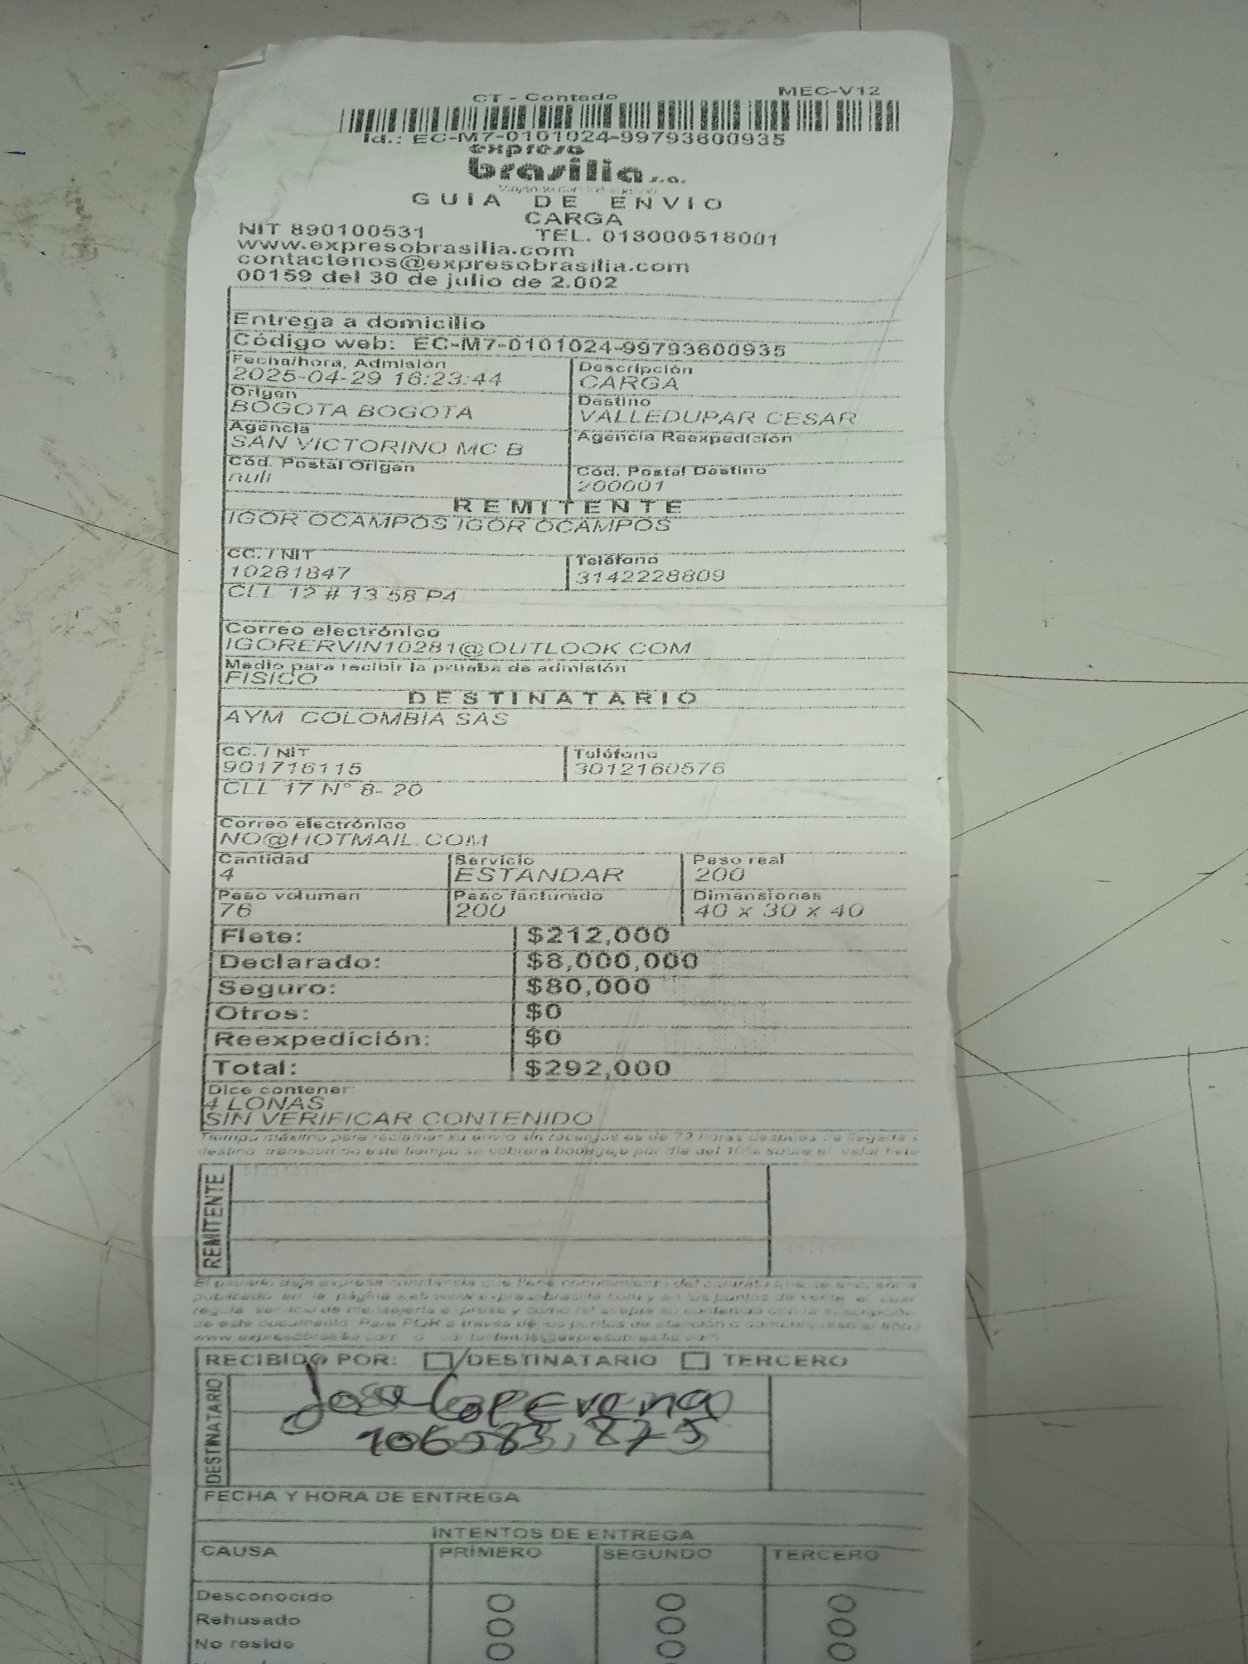 CT - Contado MEC-V12
Id.: EC-M7-0101024-99793600935
expreso
brasilia s.a.
GUIA DE ENVIO
CARGA
NIT 890100531 TEL. 013000518001
www.expresobrasilia.com
contactenos@expresobrasilia.com
00159 del 30 de julio de 2.002
Entrega a domicilio
Código web: EC-M7-0101024-99793600935
Fecha/hora, Admisión Descripción
2025-04-29 16:23:44 CARGA
Origen Destino
BOGOTA BOGOTA VALLEDUPAR CESAR
Agencia Agencia Reexpedición
SAN VICTORINO MC B
Cód. Postal Origen Cód. Postal Destino
null 200001
REMITENTE
IGOR OCAMPOS IGOR OCAMPOS
CC. / NIT Teléfono
10281847 3142228809
CLL 12 # 13 58 P4
Correo electrónico
IGORERVIN10281@OUTLOOK.COM
Medio para recibir la prueba de admisión
FISICO
DESTINATARIO
AYM COLOMBIA SAS
CC. / NIT Teléfono
901716115 3012160576
CLL 17 N° 8- 20
Correo electrónico
NO@HOTMAIL.COM
Cantidad Servicio Peso real
4 ESTANDAR 200
Peso volumen Peso facturado Dimensiones
76 200 40 x 30 x 40
Flete: $212,000
Declarado: $8,000,000
Seguro: $80,000
Otros: $0
Reexpedición: $0
Total: $292,000
Dice contener:
4 LONAS
SIN VERIFICAR CONTENIDO
Tiempo máximo para reclamar su envio sin recargos es de 72 horas despues de llegada a
destino, transcurrido este tiempo se cobrara bodegaje por dia del 10% sobre el valor flete
REMITENTE
El usuario deja expresa constancia que tiene conocimiento del contrato que se encuentra
publicado en la página web www.expresobrasilia.com y en los puntos de venta, el cual
regula servicio de mensajería expresa y como tal acepta su contenido con la suscripción
de este documento. Para PQR a través de los puntos de atención o comuníquese al
www.expresobrasilia.com o contactenos@expresobrasilia.com
RECIBIDO POR: DESTINATARIO TERCERO
DESTINATARIO
Jose
106583,875
FECHA Y HORA DE ENTREGA
INTENTOS DE ENTREGA
CAUSA PRIMERO SEGUNDO TERCERO
Desconocido
Rehusado
No reside